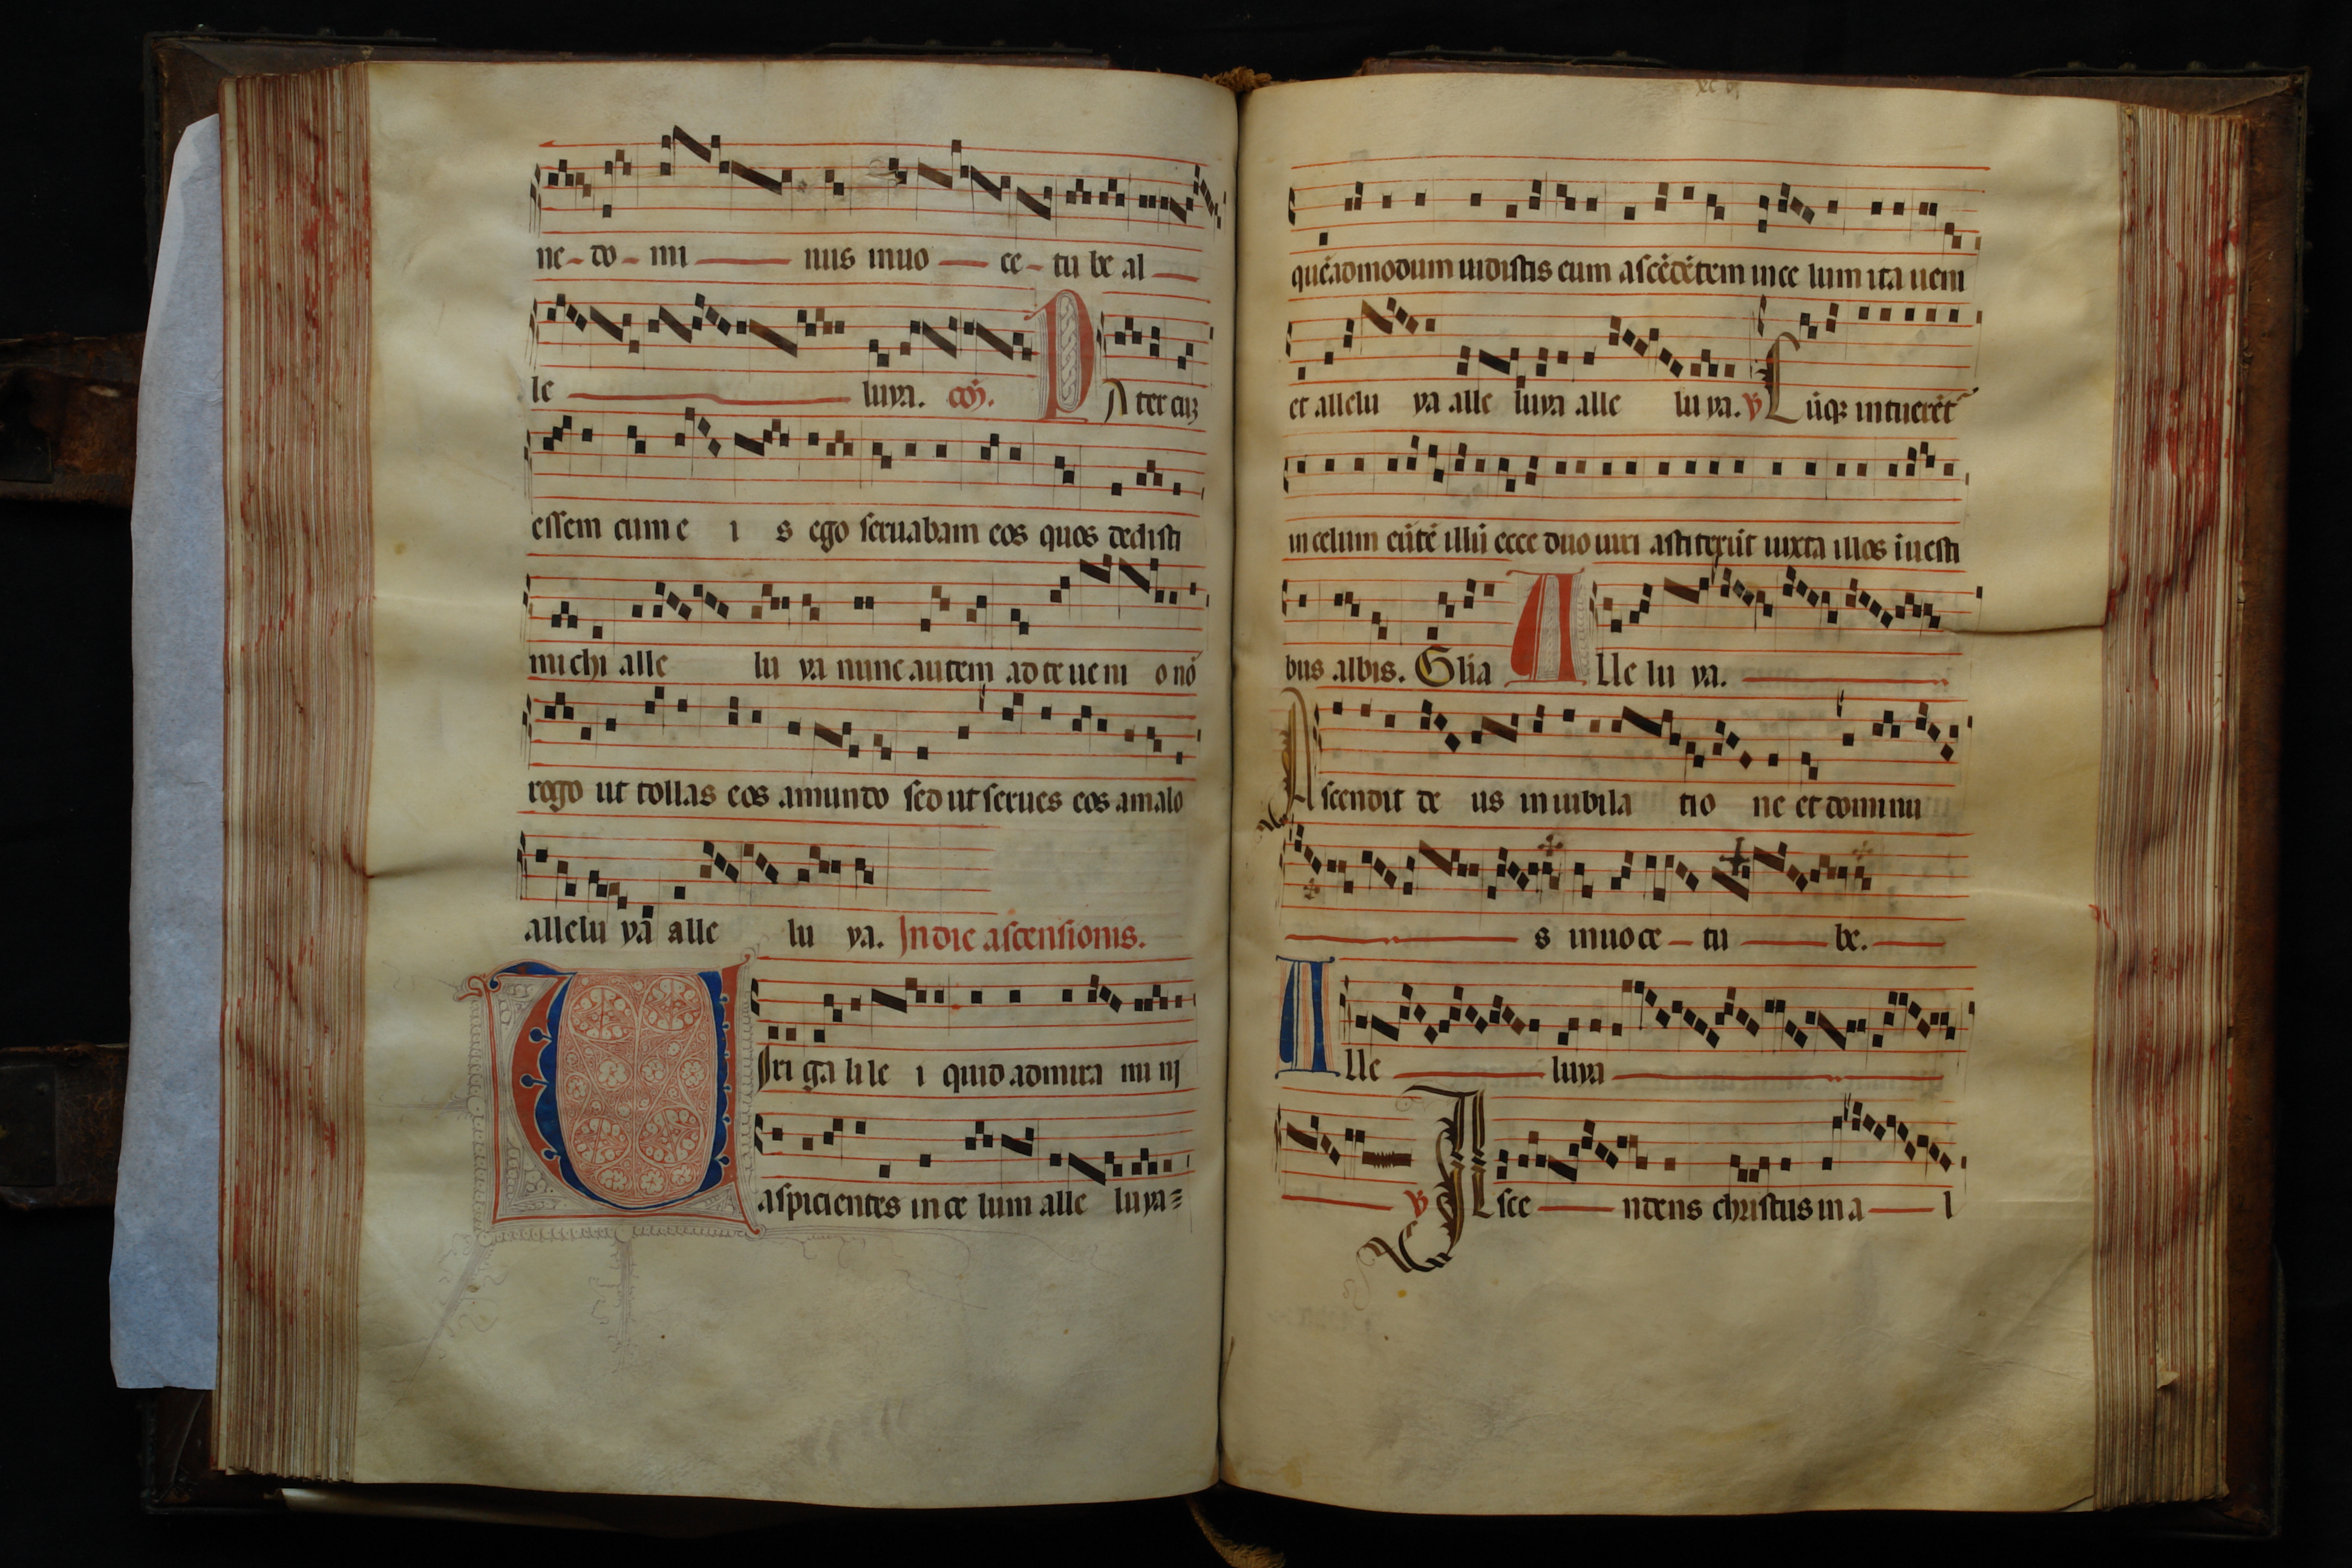 ne - do - mi nus in uo ce - tu be al
le luya. co. P A ter cuz
essem cum e i s ego seruabam eos quos dedisti
michi alle lu ya nunc autem ad te ueni o nō
rogo ut tollas eos amundo sed ut serues eos amalo
allelu ya alle lu ya. In die ascensionis.
V Iri ga li le i quid admira mi nj
aspicientes in ce lum alle luya=
quēadmodum uidistis eum ascēdētem in ce lum ita ueni
et allelu ya alle luya alle lu ya. V Cūqȝ intuerēt
in celum eūtē illū ecce duo uiri astiterūt iuxta illos ī uesti
bus albis. Glīa A lle lu ya.
Ascendit de us in iubila tio ne et dominu
s in uo ce - tu be.
A lle luya
V Asce ndens christus in a l